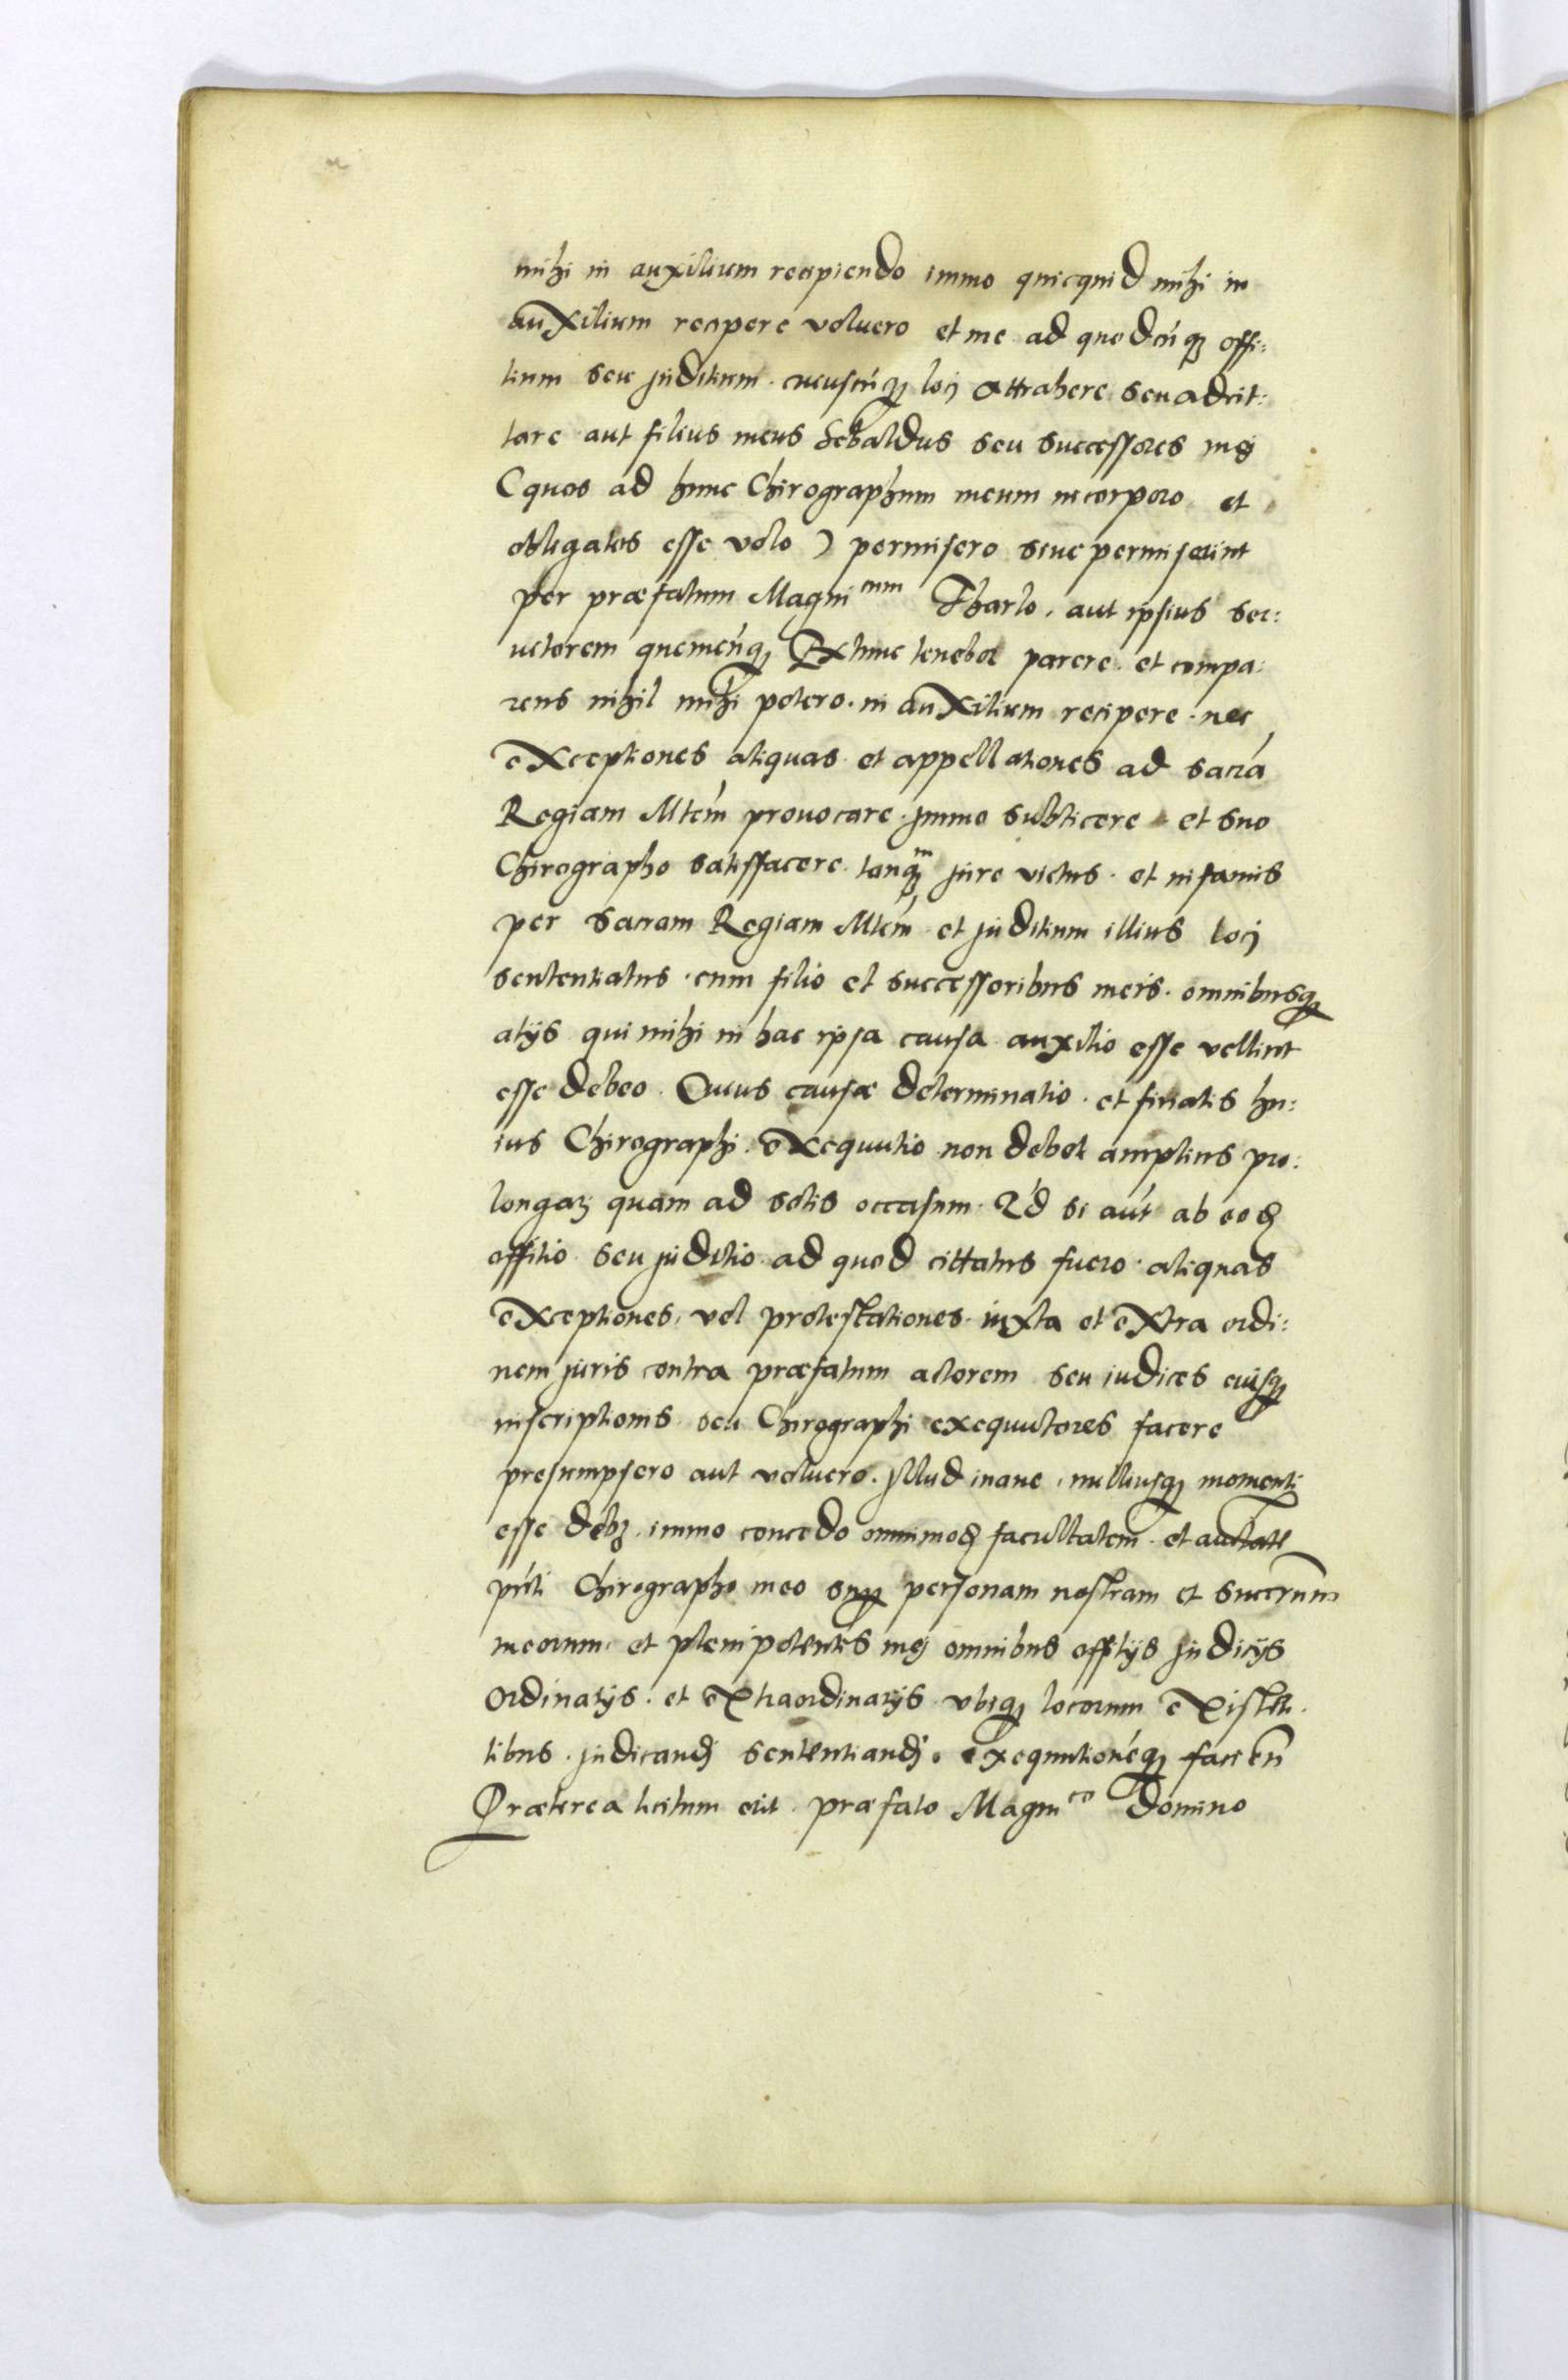 mihi in auxilium recipiendo immo quicquid mihi in
auxilium recipere voluero et me ad quodcúq₃ offi:
tium seu juditium . cuiuscúq₃ locj attrahere seu adcit:
tare aut filius meus Sebaldus seu successores mej
(quos ad hunc Chirographum meum incorporo et
obligatos esse volo) permisero siue permiserint
per præfatum Magni^cum Tharlo, aut ipsius sec:
utorem quemcúq₃ Extunc tenebor parere. et compa:
rens nihil mihi potero. in auxilium recipere. nec
exceptiones aliquas et appellationes ad sacrá
Regiam Mtem prouocare. Immo subticere et suo
Chirographo satisfacere. tanq^m jure victus. et infamis
per sacram Regiam Mtem et juditium illius locj
sententiatus. cum filio et successoribus meis. omnibusq₃
alijs qui mihi in hac ipsa causa auxilio esse vellint
esse debeo. Cuius causæ determinatio. et finalis hu:
ius Chirographi. exequutio non debet amplius pro:
longarj quam ad solis occasum. Id si aút ab eod
offitio seu juditio. ad quod cittatus fuero. aliquas
exceptiones, vel protestationes. iuxta et extra ordi:
nem juris contra præfatum actorem seu iudices eiusq₃
inscriptionis seu Chirographi exequutores facere
presumpsero aut voluero. Illud inane, nulliusq₃ momentj
esse deb₃. immo concedo omnimod facultatem. et auctatē
pńti Chirographo meo supr personam nostram et succrum
meorum. et plenipotentes mej omnibus offitijs judicijs
ordinarijs. et extraordinarijs vbiq₃ locorum existen.
tibus. judicandj sententiandj. exequutionéq₃ faciēn
Præterea licitum erit. præfato Magni^co Domino